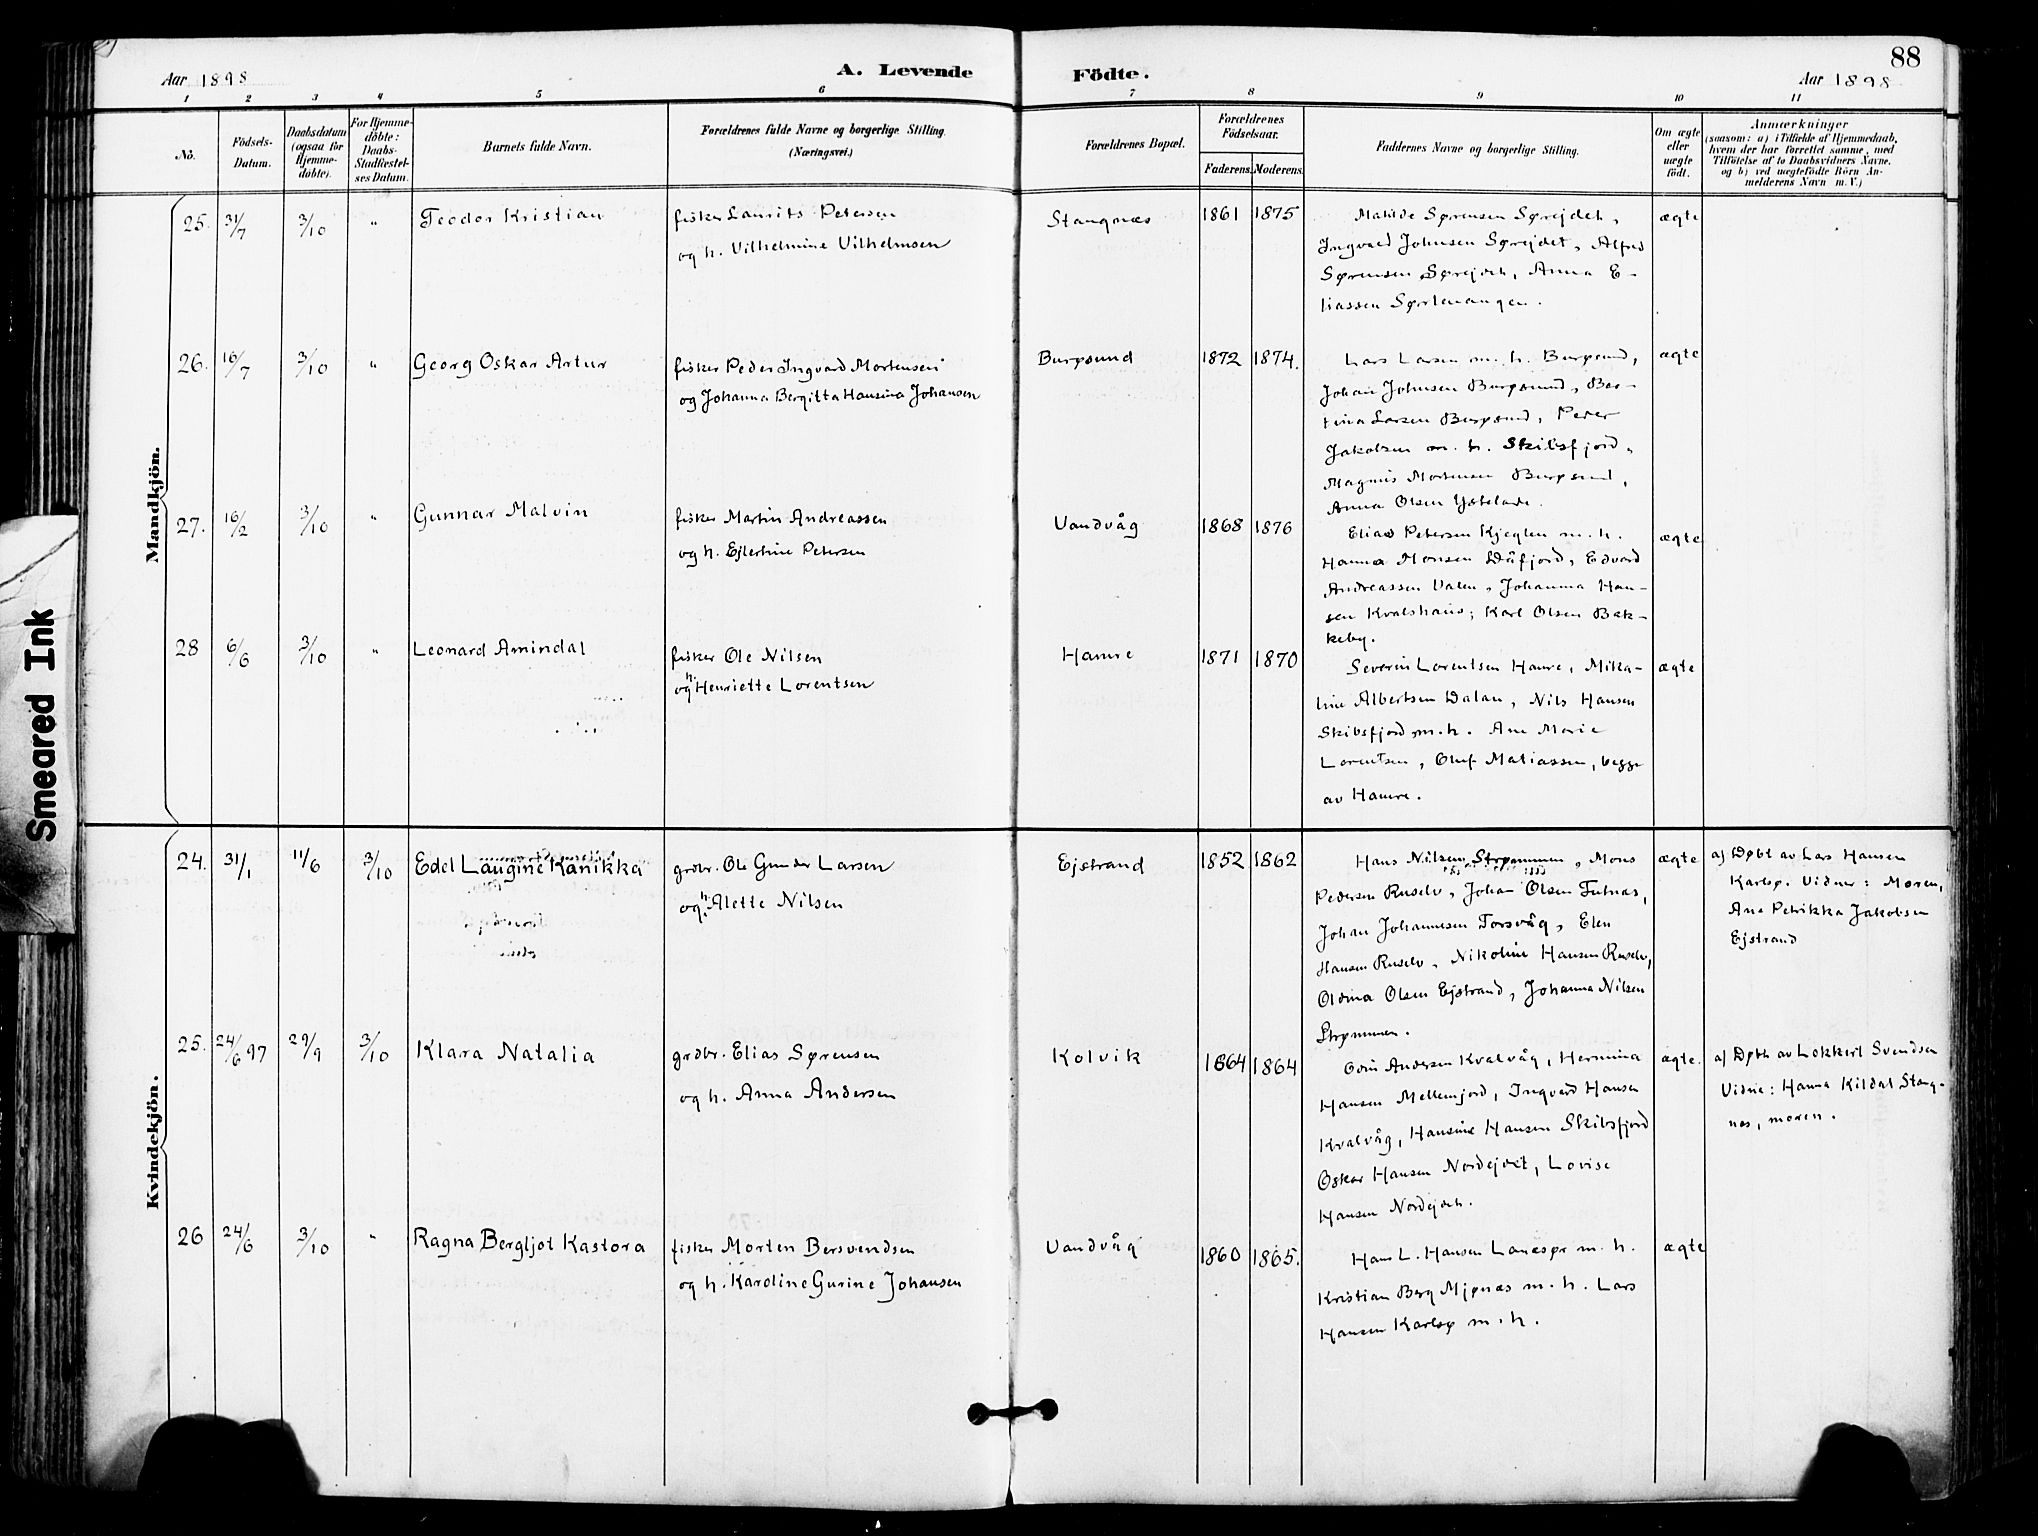 88
Aar 1898
A. Levende
Födte.
Aar 1898
1 2 3 4 5 6 7 8 9 10 11
No.
Födsels-
Datum.
Daabsdatum
(ogsaa for
Hjemme-
döbte).
For Hjemme-
döbte:
Daabs-
Stadfæstel-
ses Datum.
Barnets fulde Navn.
Forældrenes fulde Navne og borgerlige Stilling.
(Næringsvei.)
Forældrenes Bopæl.
Forældrenes
Födselsaar.
Faderens. Moderens.
Faddernes Navne og borgerlige Stilling.
Om ægte
eller
uægte
födt.
Anmærkninger
(saasom: a) i Tilfælde af Hjemmedaab,
hvem der har forrettet samme, med
Tilföielse af to Daabsvidners Navne.
og b) ved uægtefödte Börn An-
melderens Navn m. V.)
Mandkjön.
25. 31/7 3/10 " Teodor Kristian
fisker Laurits Petersen
og h. Vilhelmine Vilhelmsen
Stangnæs 1861 1875
Matilde Sørensen Sørejdet,
Ingvald Johnsen Sørejdet, Alfred
Sørensen Sørejdet, Anna E-
liassen Sørlenangen.
ægte
26. 16/7 3/10 " Georg Oskar Artur
fisker Peder Ingvard Mortensen
og Johanna Bergitta Hansina Johansen
Burøsund 1872 1874.
Lars Larsen m. h. Burøsund,
Johan Johnsen Burøsund, Ber-
tina Larsen Burøsund, Peder
Jakobsen m. h. Skibsfjord,
Magnus Mortensen Burøsund,
Anna Olsen
ægte
27. 16/2 3/10 " Gunnar Malvin
fisker Martin Andreassen
og h. Ejlertine Petersen
Vandvåg 1868 1876
Elias Petersen Kjeglen m. h.
Hanna Monsen Dåfjord, Edvard
Andreassen Valen, Johanna Han-
sen Kvalshaus, Karl Olsen Bak-
keby.
ægte
28 6/6 3/10 " Leonard Amindal
fisker Ole Nilsen
og h. Henriette Lorentsen
Hamre 1871 1870
Severin Lorentsen Hamre, Mika-
line Albertsen Dalan, Nils Hansen
Skibsfjord, m. h. Ane Marie
Lorentsen, Oluf Matiassen, begge
av Hamre.
ægte
Kvindekjön.
24. 31/1 11/6 3/10 Edel Laugine Kanikka
grdbr. Ole Gunder Larsen
og h. Alette Nilsen
Ejstrand 1852 1862
Hans Nilsen Strømmen, Mons
Pedersen Ruselv, Johan Olsen
Johan Johannesen Torsvåg, Elen
Hansen Ruselv, Nikoline Hansen Ruselv,
Oldina Olsen Ejstrand, Johanna Nilsen
Strømmen.
ægte
a) Døbt av Lars Hansen
Karlsø. Vidner: Moren,
Ane Petrikka Jakobsen
Ejstrand
25. 24/6 97 29/9 3/10 Klara Natalia
grdbr. Elias Sørensen
og h. Anna Andersen
Kolvik 1864 1864
Odin Andersen Kvalvåg, Hermina
Hansen Mellemjord, Ingvard Hansen
Kvalvåg, Hansine Hansen Skibsfjord
Oskar Hansen Nordejdet, Lovise
Hansen Nordejdet.
ægte.
a) Døbt av Lokkert Svendsen
Vidne: Hanna Kildal Stang-
næs, moren.
26 24/6 3/10 " Ragna Bergljot Kastora
fisker Morten Bersvendsen
og h. Karoline Gurine Johansen
Vandvåg 1860 1865.
Hans L. Hansen Lanesør m. h.
Kristian Berg Mjønæs m. h. Lars
Hansen Karlsø m. h.
ægte
Smeared Ink